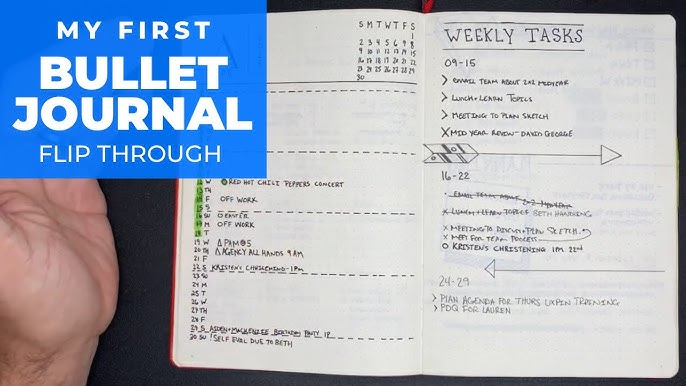 MY FIRST
BULLET
JOURNAL
FLIP THROUGH
S M T W T F S
1
2 3 4 5 6 7 8
9 10 11 12 13 14 15
16 17 18 19 20 21 22
23 24 25 26 27 28 29
30
12 W RED HOT CHILI PEPPERS CONCERT
13 TH
14 F OFF WORK
15 S
16 SU O EASTER
17 M OFF WORK
18 T
19 W Δ PAM@5
20 TH Δ AGENCY ALL HANDS 9 AM
21 F
22 S KRISTEN'S CHRISTENING - 1PM
23 SU
24 M
25 T
26 W
27 TH
28 F
29 S + MACKENZIE BIRTHDAY PARTY 1P
30 SU ! SELF EVAL DUE TO BETH
WEEKLY TASKS
09-15
> EMAIL TEAM ABOUT 2x2 MIDYEAR
> LUNCH + LEARN TOPICS
> MEETING TO PLAN SKETCH
X MID YEAR REVIEW - DAVID GEORGE
16-22
· EMAIL TEAM ABOUT 2x2 MIDYEAR
X LUNCH + LEARN TOPICS BETH HANDLING
X MEETING TO DISCUSS + PLAN SKETCH
X MEET FOR TEAM PROCESS
O KRISTEN'S CHRISTENING 1PM 22nd
24-29
> PLAN AGENDA FOR THURS UXPIN TRAINING
> PDQ FOR LAUREN